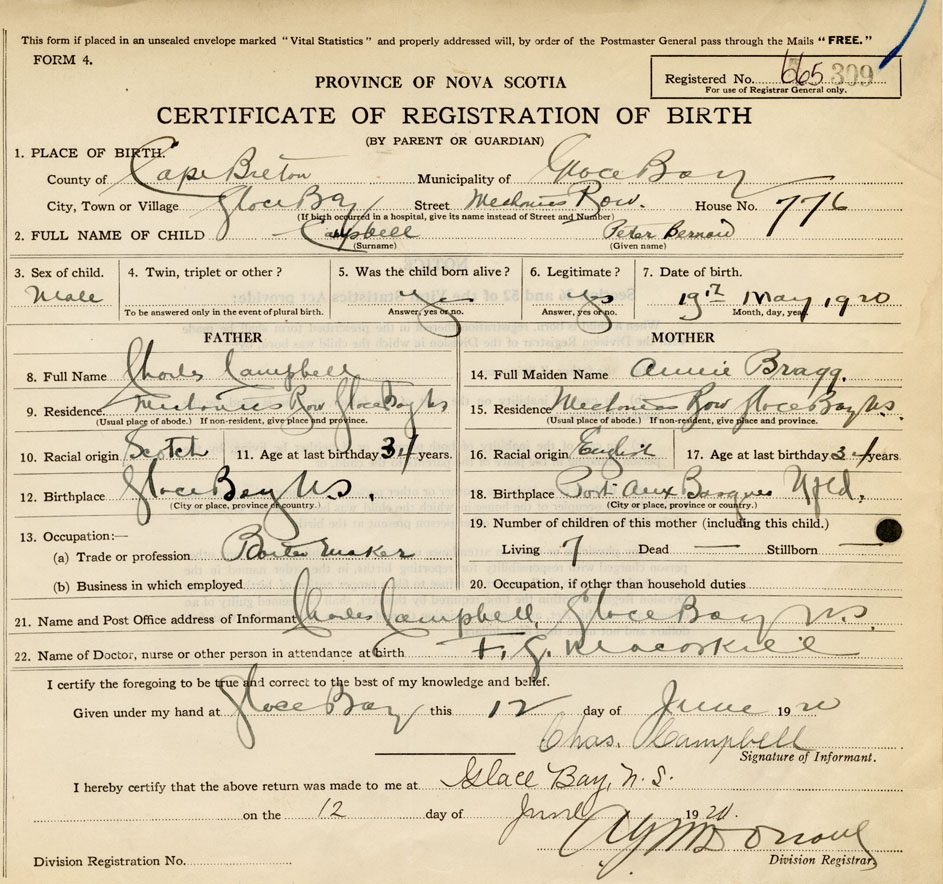 This form if placed in an unsealed envelope marked "Vital Statistics" and properly addressed will, by order of the Postmaster General pass through the Mails "FREE."
FORM 4.
Registered No. 665 309
For use of Registrar General only.
PROVINCE OF NOVA SCOTIA
CERTIFICATE OF REGISTRATION OF BIRTH
(BY PARENT OR GUARDIAN)
1. PLACE OF BIRTH.
County of Cape Breton Municipality of Glace Bay
City, Town or Village Glace Bay Street Mechanics Row. House No. 776
(If birth occurred in a hospital, give its name instead of Street and Number)
2. FULL NAME OF CHILD Campbell Peter Bernard
(Surname) (Given name)
3. Sex of child. 4. Twin, triplet or other? 5. Was the child born alive? 6. Legitimate? 7. Date of birth.
Male yes yes 19th May 1920
To be answered only in the event of plural birth. Answer, yes or no. Answer, yes or no. Month, day, year.
FATHER MOTHER
8. Full Name Charles Campbell 14. Full Maiden Name Annie Bragg.
9. Residence. Mechanics Row Glace Bay NS 15. Residence Mechanics Row Glace Bay N.S.
(Usual place of abode.) If non-resident, give place and province. (Usual place of abode.) If non-resident, give place and province.
10. Racial origin Scotch 11. Age at last birthday 34 years. 16. Racial origin English 17. Age at last birthday 34 years.
12. Birthplace Glace Bay N.S. 18. Birthplace Port Aux Basques Nfld.
(City or place, province or country.) (City or place, province or country.)
13. Occupation:— 19. Number of children of this mother (including this child.)
(a) Trade or profession Boiler maker Living 7 Dead — Stillborn —
(b) Business in which employed 20. Occupation, if other than household duties
21. Name and Post Office address of Informant Charles Campbell, Glace Bay N.S.
22. Name of Doctor, nurse or other person in attendance at birth
I certify the foregoing to be true and correct to the best of my knowledge and belief.
Given under my hand at Glace Bay this 12 day of June 1920
Chas. Campbell
Signature of Informant.
I hereby certify that the above return was made to me at Glace Bay, N.S.
on the 12 day of June 1920.
Division Registration No. Division Registrar.